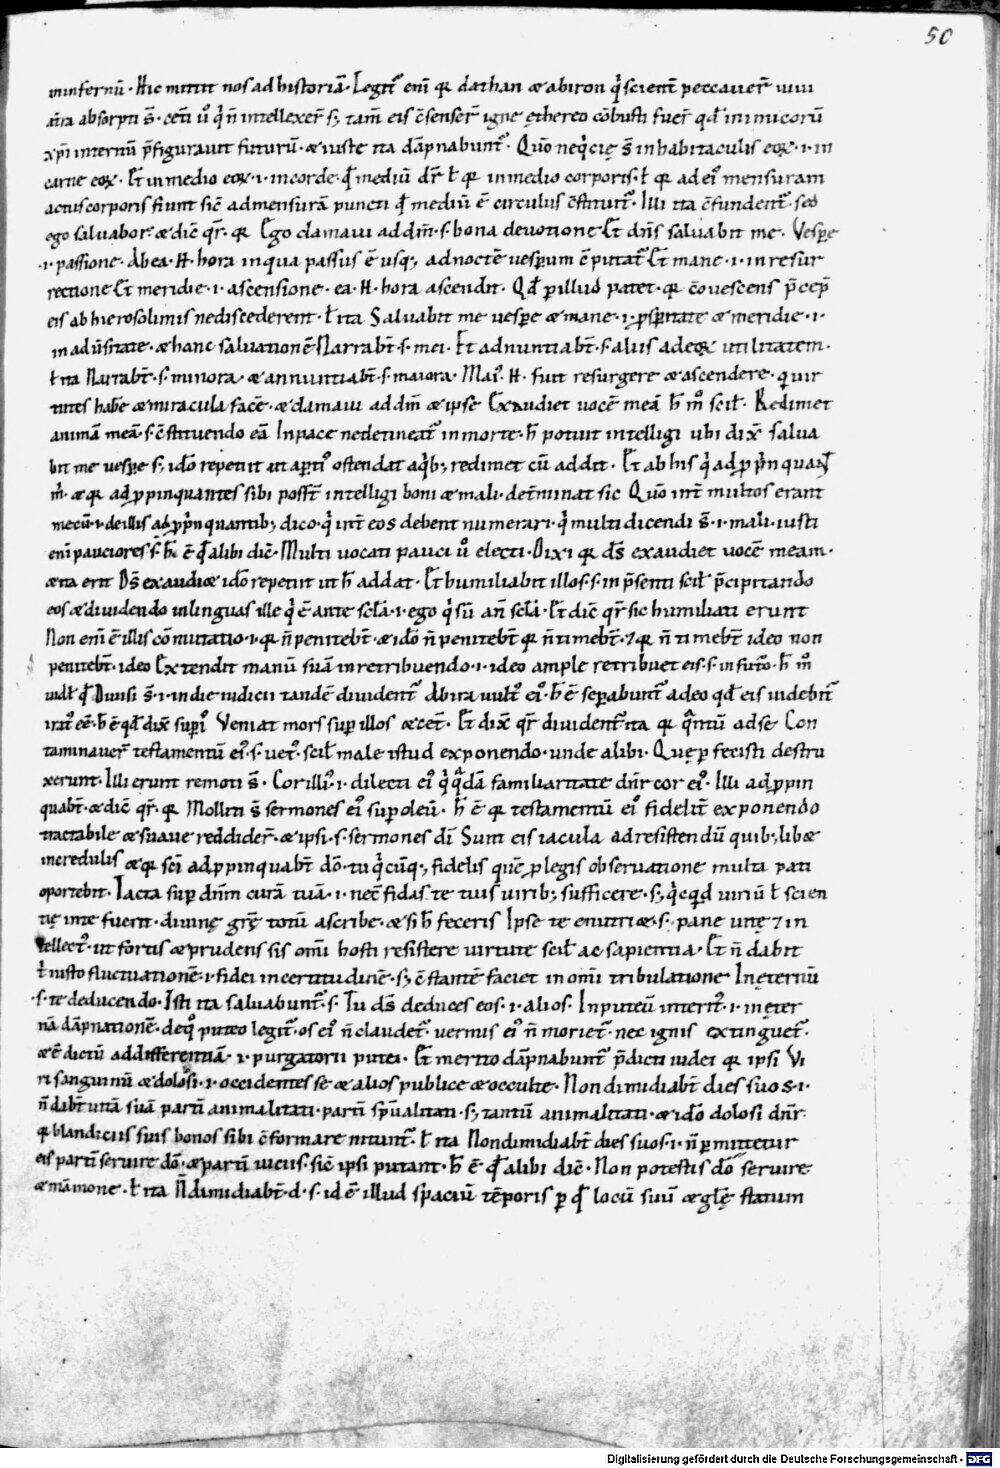 50
in infernū · Hic mittit nos ad historiā · Legit᷒ eni᷒ qꝛ dathan & abiron q̇ scient᷒ peccauer̄ uiui
absorpti s̄ · n̄ intellexer̄ s; tam̄ eis c̄senser̄ igne ętherco cōbusti fuer̄ qd̄ inimicorū
xp̄i internū p̄figurauit futurū · & iuste ita dāpnabunt᷒ · Quō neq̇cię s̄ in habitaculis eoꝝ · i · in
carne eoꝝ · Et in medio eoꝝ · i · in corde · q̄ mediū dr̄ ł qꝛ in medio corporis · ł qꝛ ad ei᷒ mensuram
actus corporis fiunt sic̄ ad mensurā puncti q̄ mediū ē circulus c̄stituit᷒ · Illi ita c̄fundent᷒ · sed
ego saluabor · & dic̄ qr̄ · qꝛ Ego clamaui ad dm̄ · s · bona deuotione Et dn̄s saluabit me · Vespe
· i · passione · Ab ea · H · hora in qua passus ē usq; ad noctē uesperum ē putat᷒ Et mane · i · in resur
rectione Et meridie · i · ascensione · ea · H · hora ascendit · Qd̄ p illud patet · qꝛ cōuescens p̄cep̄
eis ab hierosolimis ne discederent · ł ita Saluabit me uespe & mane · i · pspitate & meridie · i ·
in aduersitate · & hanc saluationē Narrabt̄ · s · mei · Et adnuntiabt̄ · s · aliis ad eoꝝ utilitatem ·
ł ita Narrabt̄ · s · minora · & annuntiabt̄ · s · maiora · Mai᷒ · H · fuit resurgere & ascendere · q̄ uir
tutes habe & miracula face᷒ · & clamaui ad dm̄ & ipse Exaudiet uocē meā h̄ m̊ scil᷒ · Redimet
animā meā · s · c̄stituendo eā In pace ne detineat᷒ in morte · h̄ potuit intelligi ubi dix̄ salua
bit me uespe s; idō repetit ut apti᷒ ostendat a q̇b; redimet cū addit · Et ab his q̇ adppin quant
m̄ · & qꝛ adppinquantes sibi possent intelligi boni & mali · det̄minat sic Quō int̄ multos erant
mecū · i · de illis adppin quantib; dico · q̇ int̄ eos debent numerari · q̇ multi dicendi s̄ · i · mali · iusti
eni᷒ pauciores s̄ · ē q̄ alibi dic̄ · Multi uocati pauci u̇ electi · Dixi qꝛ ds̄ exaudiet uocē meam ·
& ita erit Ds̄ exaudi& idō repetit ut h̄ addat · Et humiliabit illos · s · in p̄senti scil᷒ p̄cipitando
eos & diuidendo in linguas ille q̇ ē ante scl̄a · i · ego q̇ sū an̄ scl̄a · Et dic̄ qr̄ sic humiliati erunt
Non eni᷒ ē illis cōmutatio · i · qꝛ n̄ penitebt̄ · & idō n̄ penitebt̄ qꝛ n̄ timebt̄ · ⁊ qꝛ n̄ timebt̄ ideo non
penitebt̄ · ideo Extendit manū suā in retribuendo · i · ideo ample retribuet eis · s · in futo᷒ · h̄ m̊
Diuisi s̄ · i · in die iudicii tandē diuident᷒ Ab ira uult᷒ ei᷒ · h̄ ē separabunt᷒ adeo qd̄ eis uidebit᷒
irat᷒ ee᷒ · h̄ ē qd̄ dix̄ supi᷒ Veniat mors sup illos & cet᷒ · Et dix̄ qr̄ diuident᷒ · ita qꝛ q̄ntū ad se Con
taminauer̄ testamentū ei᷒ · s · uet᷒ · scil᷒ male istud exponendo · unde alibi · Quę p fecisti destru
xerunt · Illi erunt remoti s̄ · Cor illi᷒ · i · dilecti ei᷒ q̇ q̄dā familiaritate dn̄r cor ei᷒ · Illi adppin
quabt̄ · & dic̄ qr̄ · qꝛ Molliti s̄ sermones ei᷒ sup oleū · h̄ ē qꝛ testamentū ei᷒ fidelit̄ exponendo
tractabile & suaue reddider̄ · & ipsi · s · sermones di᷒ Sunt eis iacula ad resistendū quib; lib&
incredulis & qꝛ sci᷒ adppinquabt̄ dō · tu q̇cūq; fidelis quē p legis obseruatione multa pati
oportebit · Iacta sup dn̄m curā tuā · i · nec̄ fidas te tuis uirib; sufficere · s; q̇cq̇d uiriū ł scien
tię in te fuerit · diuinę grę totū ascribe · & si h̄ feceris Ipse te enutri& · s · pane uitę ⁊ in
tellect᷒ · ut fortis & prudens sis omi᷒ hosti resistere uirtute scil᷒ ac sapientia · Et n̄ dabit
ł iusto fluctuationē · i · fidei incertitudinē · s; c̄stantē faciet in omi᷒ tribulatione In ęternū
· s · te deducendo · Isti ita saluabunt᷒ · s · Tu ds̄ deduces eos · i · alios · In puteū interit᷒ · i · in ęter
nā dāpnationē · de q̊ puteo legit᷒ · os ei᷒ n̄ claudet᷒ · uermis ei᷒ n̄ moriet᷒ · nec ignis extinguet᷒ ·
& ē dictū ad differentiā · i · purgatorii putei · Et merito dāpnabunt᷒ p̄dicti iudei qꝛ ipsi Vi
ri sanguinū & dolosi · i · occidentes se & alios publice & occulte · Non dimidiabt̄ dies suos · i ·
n̄ dabt̄ uitā suā parti᷒ animalitati · parti᷒ spūalitati · s; tantū animalitati · & idō dolosi dn̄r ·
qꝛ blandiciis suis bonos sibi c̄formare nitunt᷒ · ł ita Non dimidiabt̄ dies suos · i · n̄ pmittetur
eis parti᷒ seruire dō · & parti᷒ uiciis · sic̄ ipsi putant · h̄ ē q̄ alibi dic̄ · Non potestis dō seruire
& māmone · ł ita N̄ dimidiabt̄ · d · s · id ē illud spaciū tēporis p q̄ locū suū & glę statum
Digitalisierung gefördert durch die Deutsche Forschungsgemeinschaft - DFG